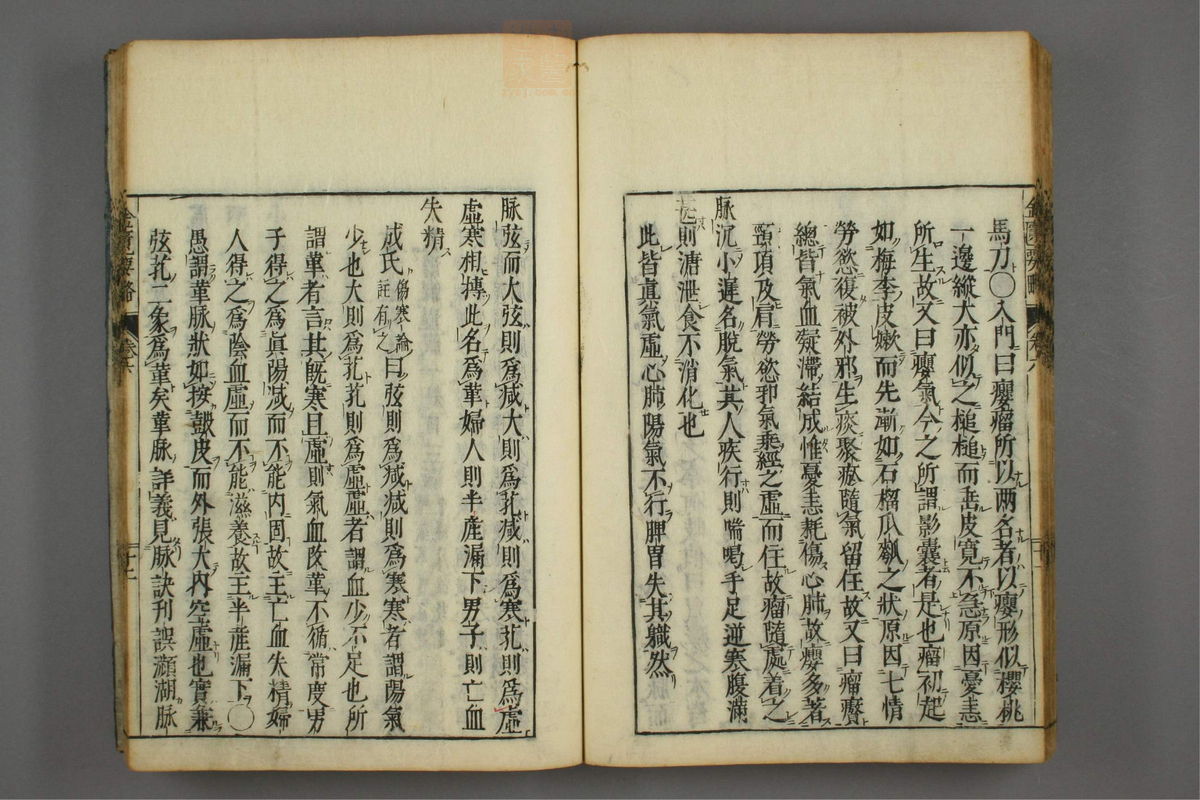 馬刀〇入門曰瘿瘤所以两名者以瘿形似櫻桃
一邊縱大亦似之槌槌而岳皮寛不急原因憂恚
所生故又曰瘿氣今之所謂影囊者是也瘤初起
如梅李皮嫩而先漸如石榴瓜瓠之狀原因七情
勞慾復被外邪生痰聚瘀隨氣留住故又曰瘤
總皆氣血凝滯結成惟憂恚耗傷心肺故瘿多著
頸項及肩勞慾邪氣乗經之虛而住故瘤隨處着之
脉沉小遲名脫氣其人疾行則喘喝手足逆寒腹滿
甚則溏泄食不消化也
此皆眞氣虛心肺陽氣不行脾胃失其職然
脉弦而大弦則爲减大則爲芤减則爲寒芤則爲虛
虛寒相摶此名爲革婦人則半產漏下男子則亡血
失精
成氏傷寒論註有之曰弦則爲减减則爲寒寒者謂陽氣
少也大則爲芤芤則爲虛虛者謂血少不足也所
謂革者言其既寒且虛則氣血改革不循常度男
子得之爲眞陽减而不能内固故主亡血失精婦
人得之爲陰血虛而不能滋養故主半產漏下〇
愚謂革脉狀如按鼓皮而外張大内空虛也實兼
弦芤二象爲革矣革脉詳義見脉訣刊誤瀕湖脉